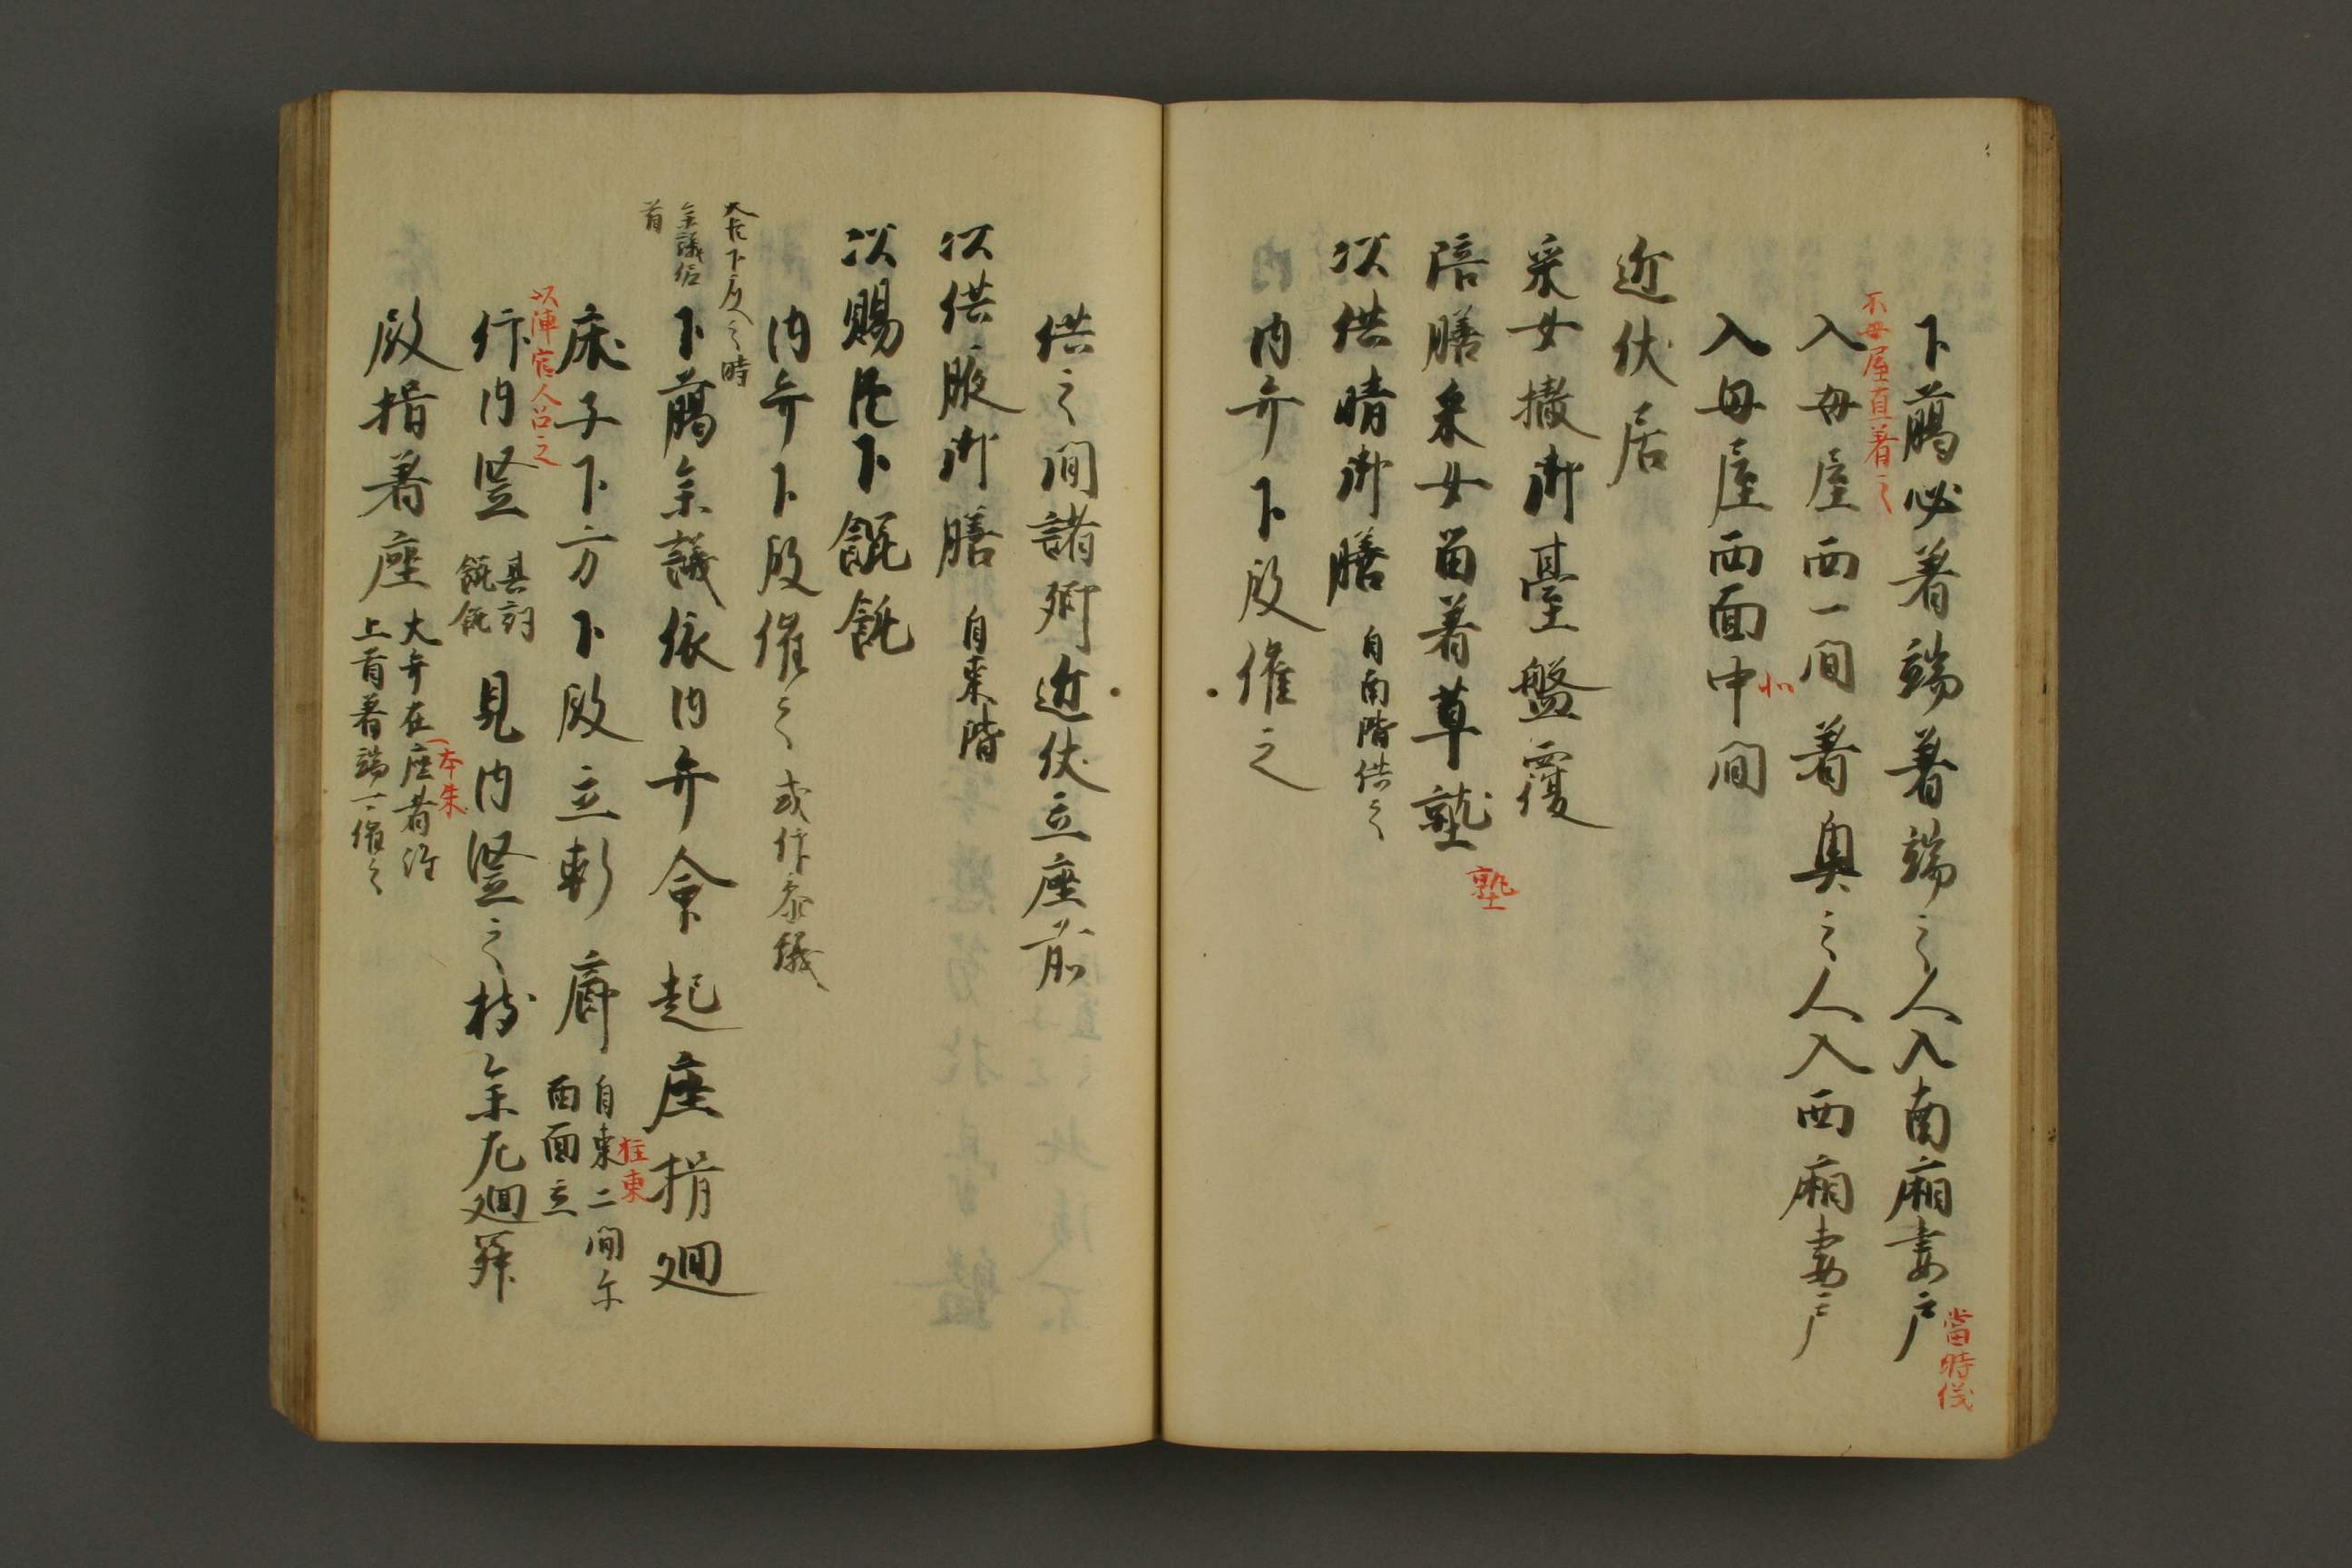 下﨟必着端着端之人入南廂妻戸
當時儀
不母屋直着之
入母屋西一間着奥之人入西廂妻戸
入母屋西面中間
近仗居
采女撤御臺盤覆
陪膳采女留着草墪
墪
次供晴御膳 自南階供之
内弁下殿催之
供之間諸卿近仗立座前
次供腋御膳 自東階
次賜臣下餛飩
内弁下殿催之 或仰参議
大臣下殿之時
参議居
首
下﨟参議依内弁命起座揖廻
床子下方下殿立軒廊 自東二間
西面立
次陣官人召之
仰内竪 其詞
餛飩 見内竪之持参左廻昇
殿揖着座 大弁在座者
上首着端一催之
一本朱